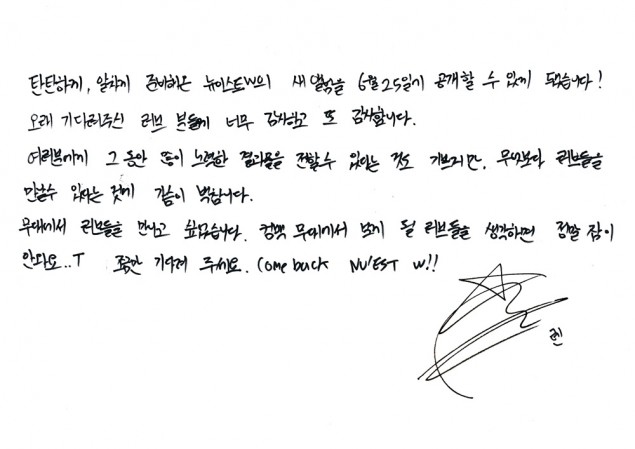 탄탄하게, 알차게 준비하온 뉴이스트W의 새 앨범을 6월 25일에 공개할 수 있게 됐습니다!
오래 기다려주신 러브 분들께 너무 감사하고 또 감사합니다.
여러분에게 그 동안 많이 노력한 결과물을 전할 수 있다는 것도 기쁘지만, 무엇보다 러브들을
만날수 있다는 것에 가슴이 벅찹니다.
무대에서 러브들을 만나고 싶었습니다. 컴백 무대에서 보게 될 러브들을 생각하면 정말 잠이
안와요..T 조금만 기다려 주세요. Come back NU'EST W!!
렌